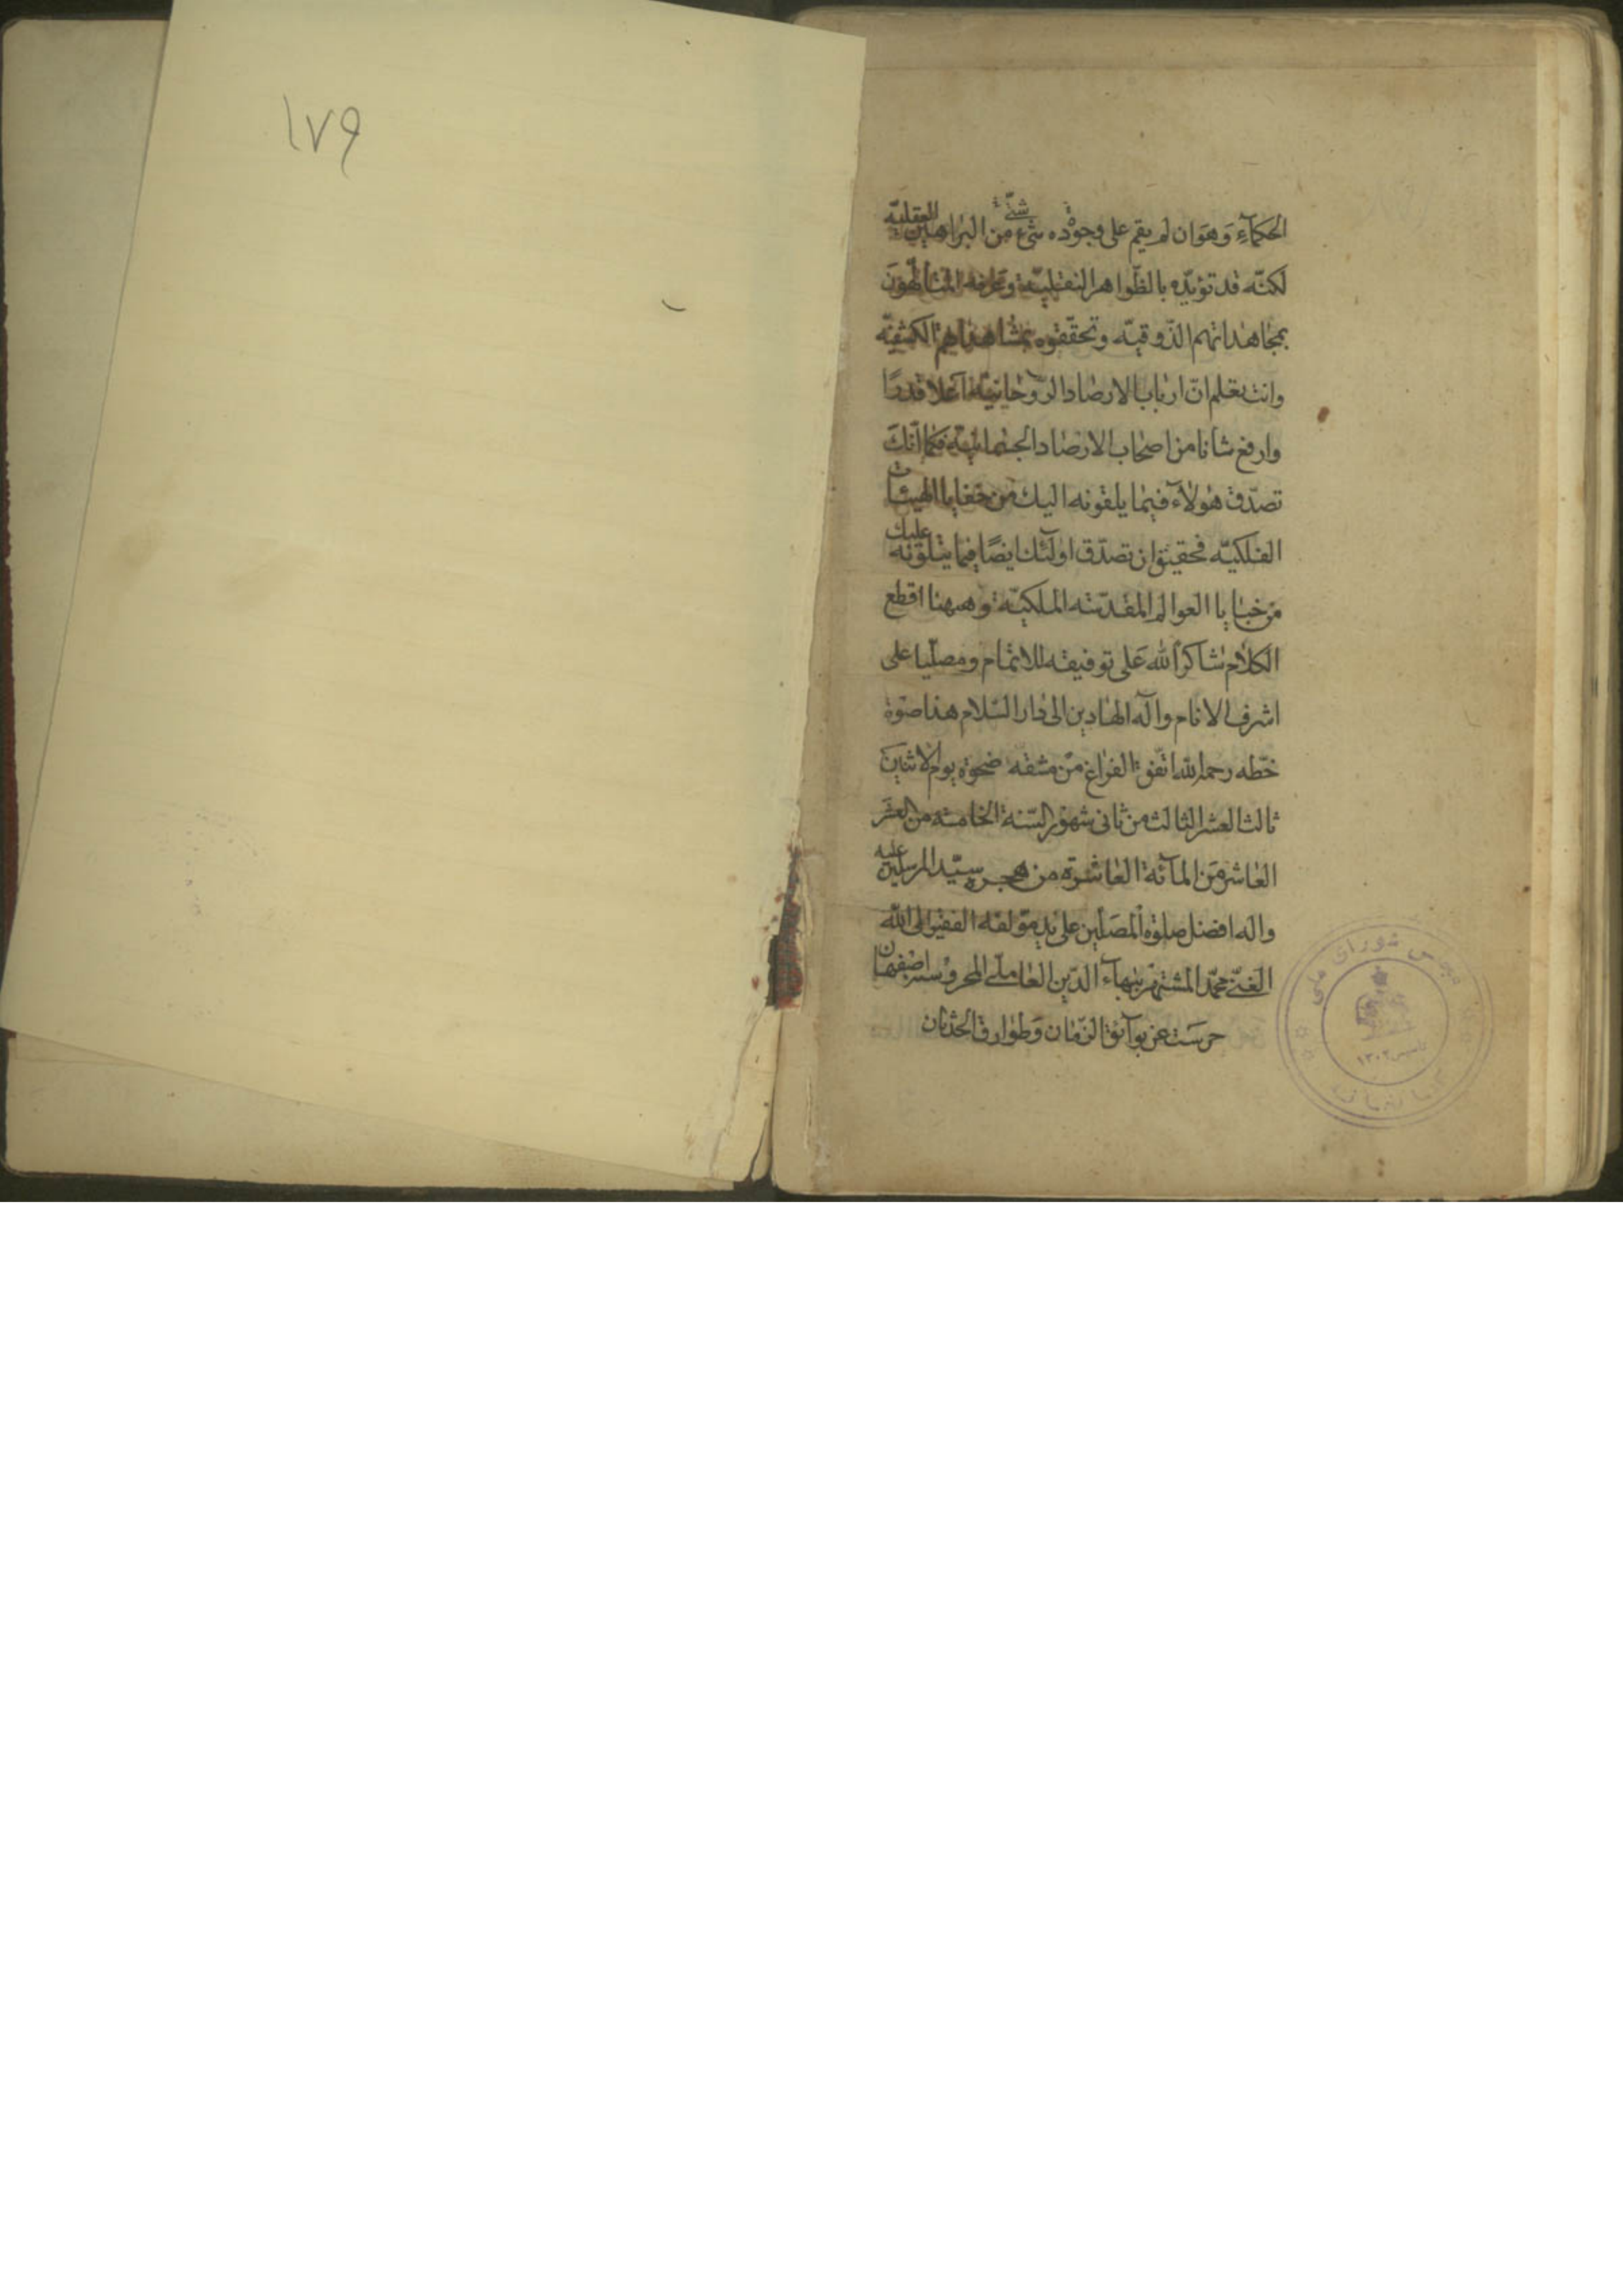 الحكمآءِ وَهوَ وان لم يقم على وجوده شئ من البراهين العقليّه
لكنّه قد تؤيّده بالظّواهر النقليّة وعرفه المتألّهون
بمجاهداتهم الذّوقيّه وتحقّقوه بمشاهداتهم الكشفيّه
وانت تعلم انّ ارباب الارصاد الرّوحانيّة اعلا قدرًا
وارفع شانا من اصحاب الارصاد الجسمانيّة فكما انّك
تصدّق هؤلاء فيما يلقونه اليك من خفايا الهيئات
الفلكيّه فحقيق ان تصدّق اولٓئك ايضًا فيما يتلونه عليك
من خبايا العوالم المقدّسه الملكيّة وهيهنا اقطع
الكلام شاكراً لله على توفيقه للاتمام ومصلّيا على
اشرف الانام وآله الهادين الى دار السّلام هذا صوة
خطّه رحمه الله اتّفق الفراغ من مشقه ضحوة يوم الاثنين
ثالث العشر الثالث من ثانى شهور السّنة الخامسة من العشر
العاشر من المآئة العاشرة من هجرة سيّد المرسلين عليه
واله افضل صلوة المصلّين على يد مؤلفه الفقير الى اللّه
الغنّى محمّد المشتهر ببهآء الدّين العاملى المحروسه اصفهان
حرسَت عن بوآئق الزّمان وَطوارق الحدثان
١٧٩
مجلس شوراى ملى
تاسيس ١٣٠٢